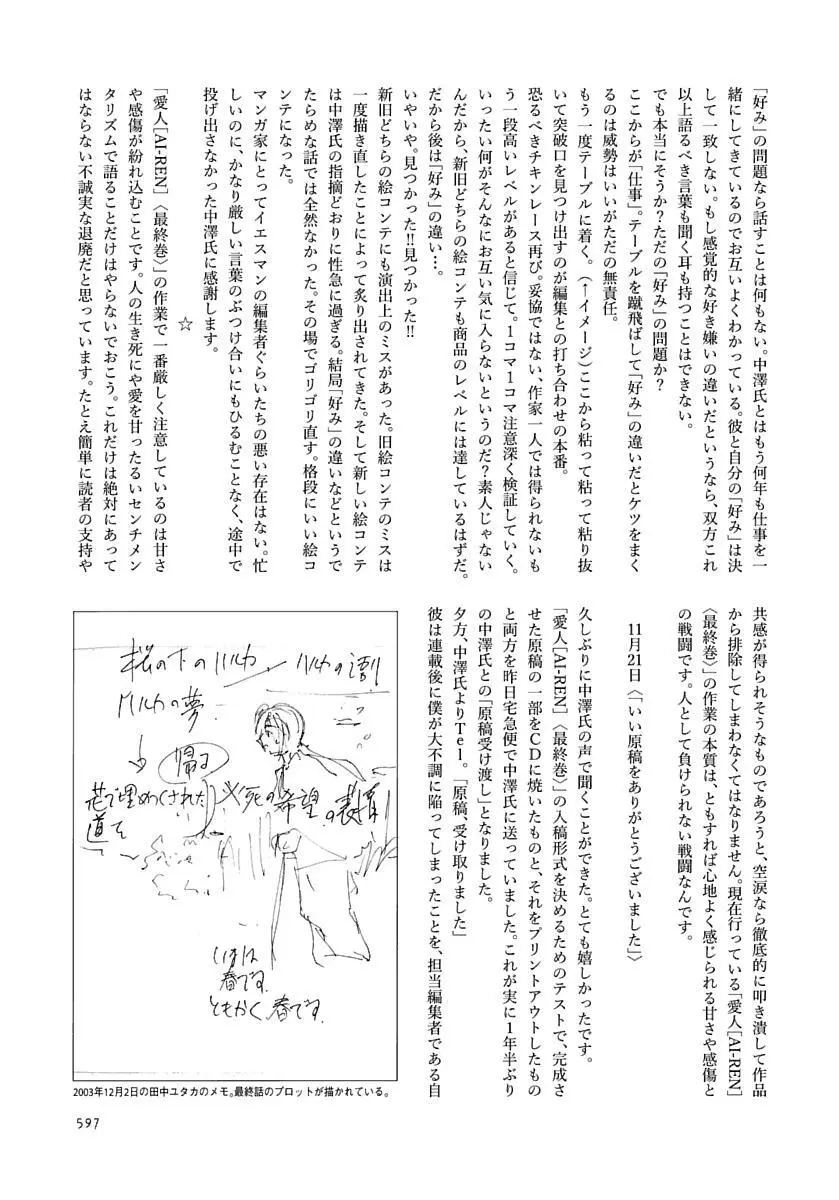 「好み」の問題なら話すことは何もない。中澤氏とはもう何年も仕事を一
緒にしてきているのでお互いよくわかっている。彼と自分の「好み」は決
して一致しない。もし感覚的な好き嫌いの違いだというなら、双方これ
以上語るべき言葉も聞く耳も持つことはできない。
でも本当にそうか？ただの「好み」の問題か？
ここからが「仕事」。テーブルを蹴飛ばして「好み」の違いだとケツをまく
るのは威勢はいいがただの無責任。
もう一度テーブルに着く。（←イメージ）ここから粘って粘って粘り抜
いて突破口を見つけ出すのが編集との打ち合わせの本番。
恐るべきチキンレース再び。妥協ではない、作家一人では得られないも
う一段高いレベルがあると信じて。１コマ１コマ注意深く検証していく。
いったい何がそんなにお互い気に入らないというのだ？素人じゃない
んだから、新旧どちらの絵コンテも商品のレベルには達しているはずだ。
だから後は「好み」の違い…。
いやいや。見つかった!!見つかった!!
新旧どちらの絵コンテにも演出上のミスがあった。旧絵コンテのミスは
一度描き直したことによって炙り出されてきた。そして新しい絵コンテ
は中澤氏の指摘どおりに性急に過ぎる。結局「好み」の違いなどというで
たらめな話では全然なかった。その場でゴリゴリ直す。格段にいい絵コ
ンテになった。
マンガ家にとってイエスマンの編集者ぐらいたちの悪い存在はない。忙
しいのに、かなり厳しい言葉のぶつけ合いにもひるむことなく、途中で
投げ出さなかった中澤氏に感謝します。
☆
「愛人［AI-REN］〈最終巻〉」の作業で一番厳しく注意しているのは甘さ
や感傷が紛れ込むことです。人の生き死にや愛を甘ったるいセンチメン
タリズムで語ることだけはやらないでおこう。これだけは絶対にあって
はならない不誠実な退廃だと思っています。たとえ簡単に読者の支持や
共感が得られそうなものであろうと、空涙なら徹底的に叩き潰して作品
から排除してしまわなくてはなりません。現在行っている「愛人［AI-REN］
〈最終巻〉」の作業の本質は、ともすれば心地よく感じられる甘さや感傷と
の戦闘です。人として負けられない戦闘なんです。
11月21日〈「いい原稿をありがとうございました」〉
久しぶりに中澤氏の声で聞くことができた。とても嬉しかったです。
「愛人［AI-REN］〈最終巻〉の入稿形式を決めるためのテストで、完成さ
せた原稿の一部をＣＤに焼いたものと、それをプリントアウトしたもの
と両方を昨日宅急便で中澤氏に送っていました。これが実に１年半ぶり
の中澤氏との「原稿受け渡し」となりました。
夕方、中澤氏よりＴｅｌ。「原稿、受け取りました」
彼は連載後に僕が大不調に陥ってしまったことを、担当編集者である自
桜の下のハルカ
ハルカの夢
帰る
花で埋めつくされた
道で
死の希望の表情
いまは
春です
ともかく春です
2003年12月2日の田中ユタカのメモ。最終話のプロットが描かれている。
597